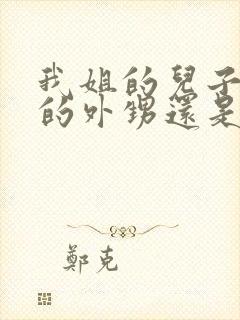 我姐的兒子
的外甥還是
鄭克